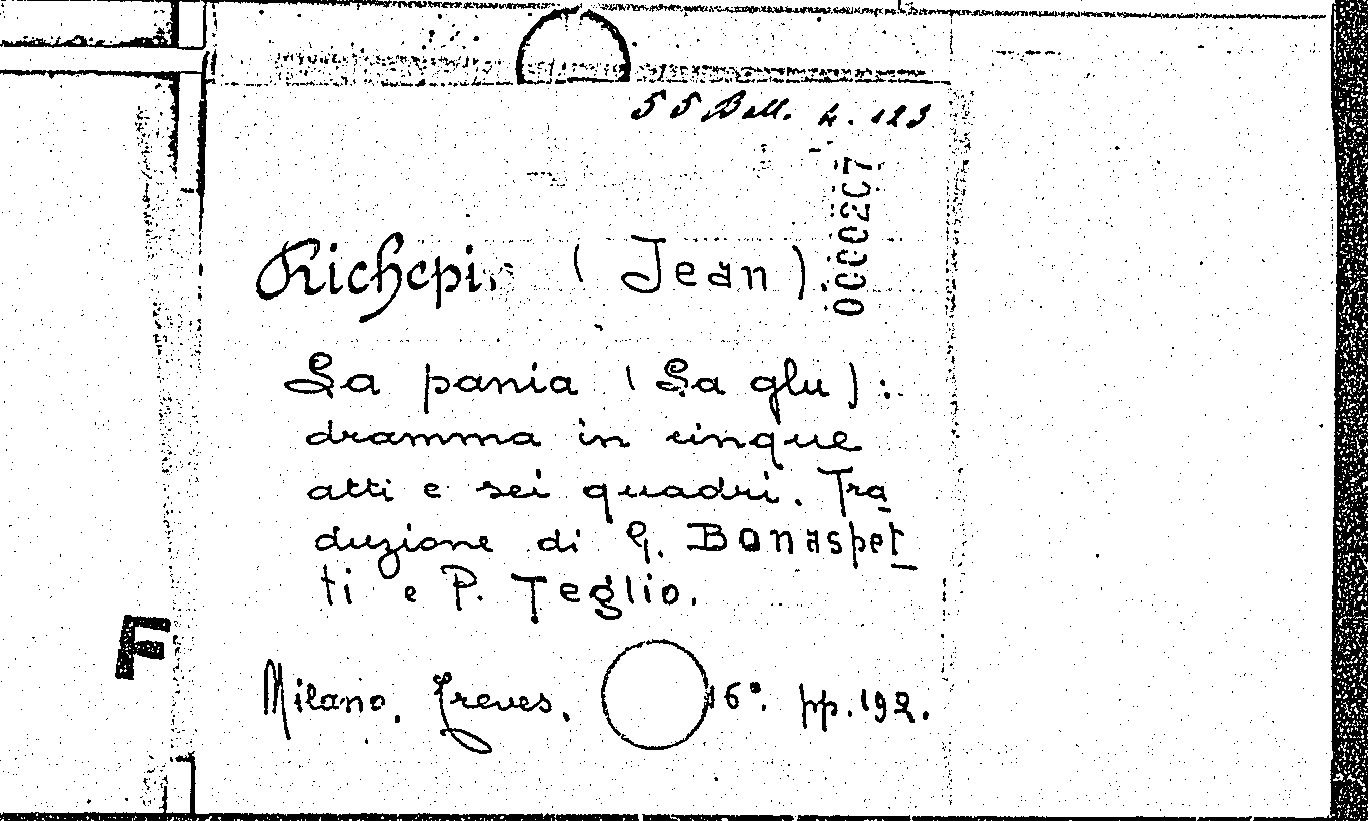 55 Ball. 4. 123
0000207
Richepi. (Jean).
La pania (La glu):
dramma in cinque
atti e sei quadri. Tra
duzione di G. Bonaspet
ti e P. Teglio.
F
Milano. Treves. 16°. pp. 192.